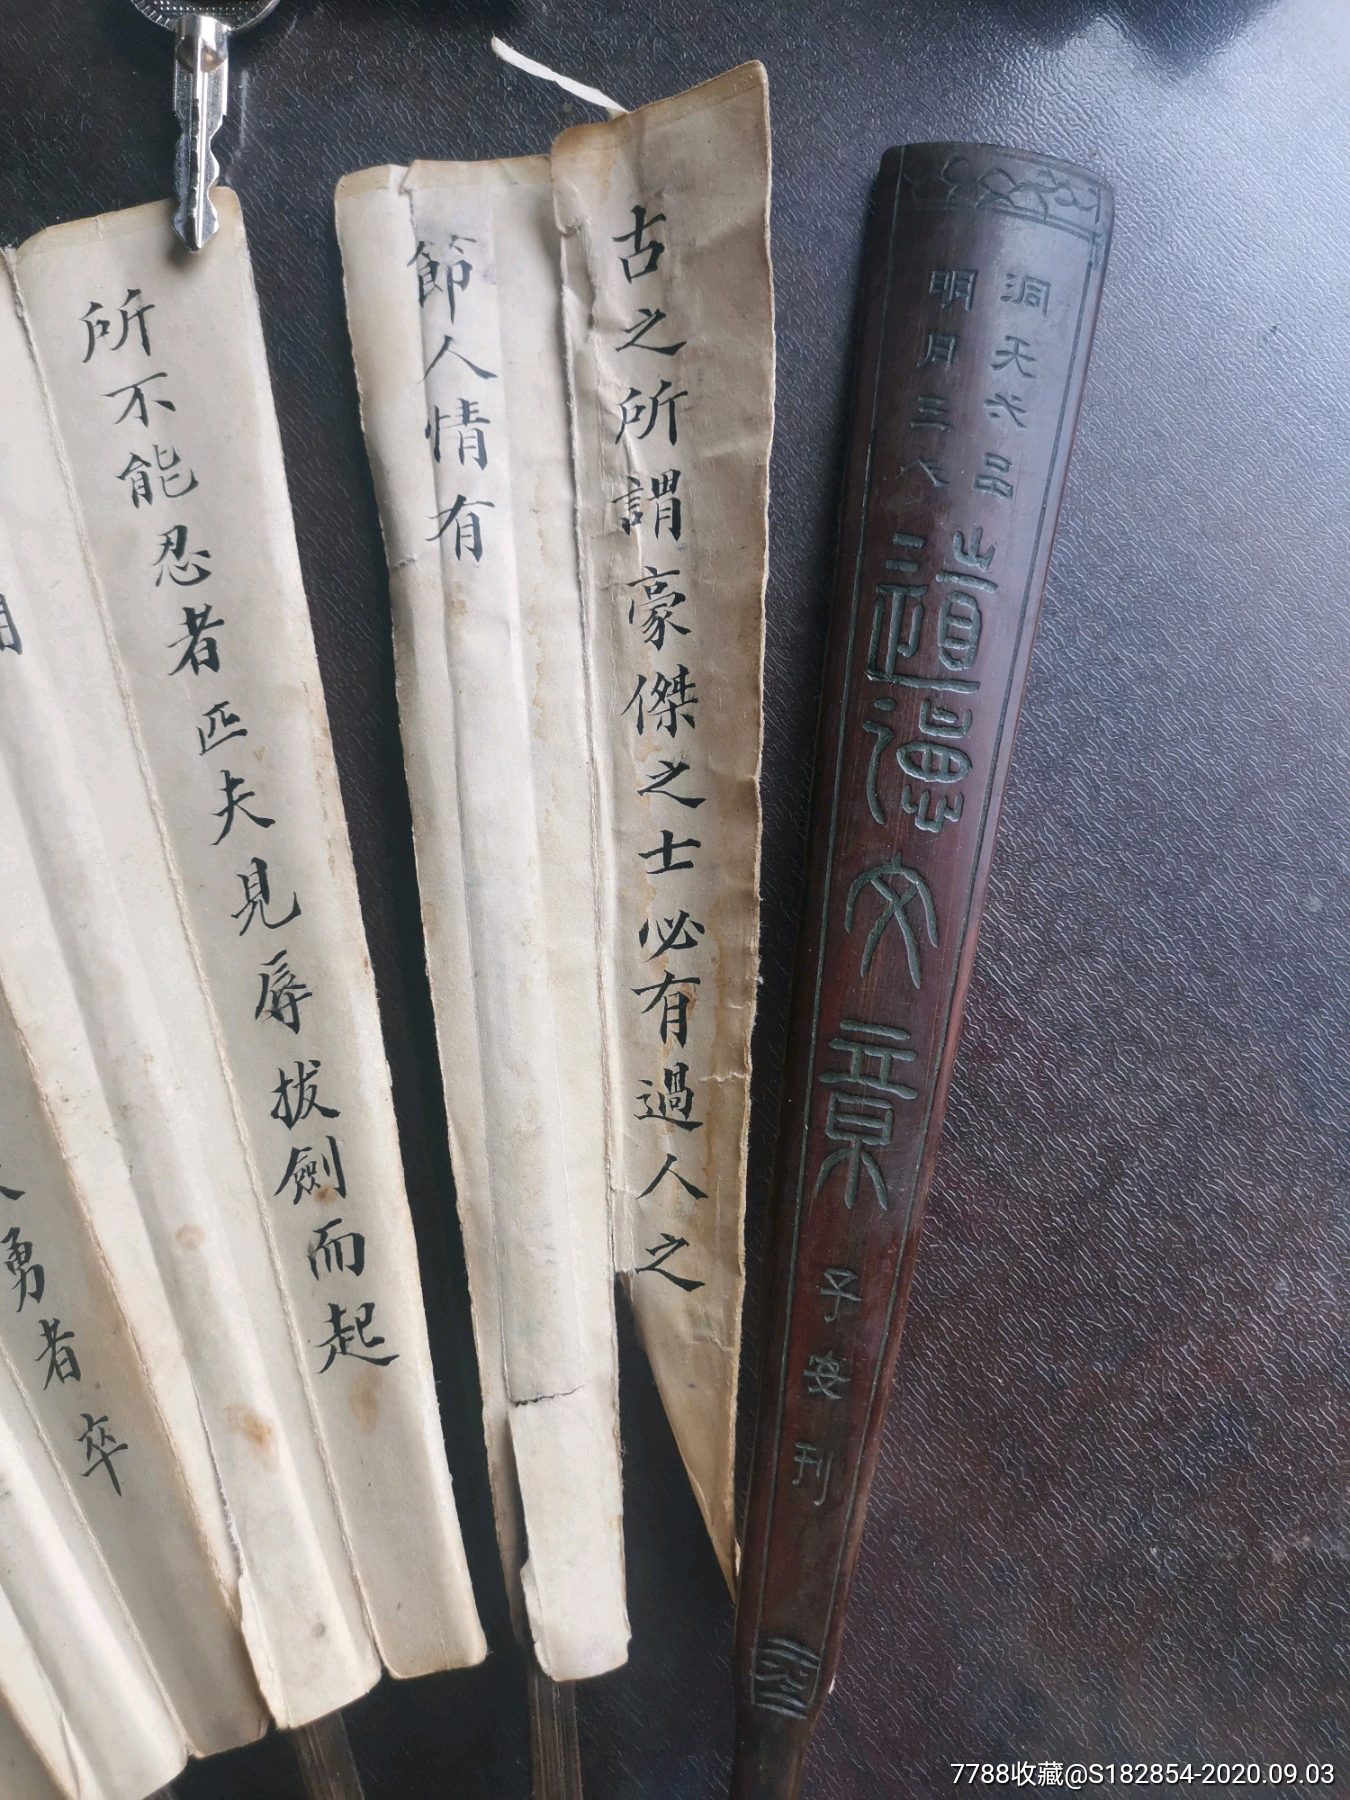 洞天六品
明月三
道德文章
子安刊
古之所謂豪傑之士必有過人之
節人情有
所不能忍者匹夫見辱拔劍而起
勇者卒
7788收藏@S182854-2020.09.03